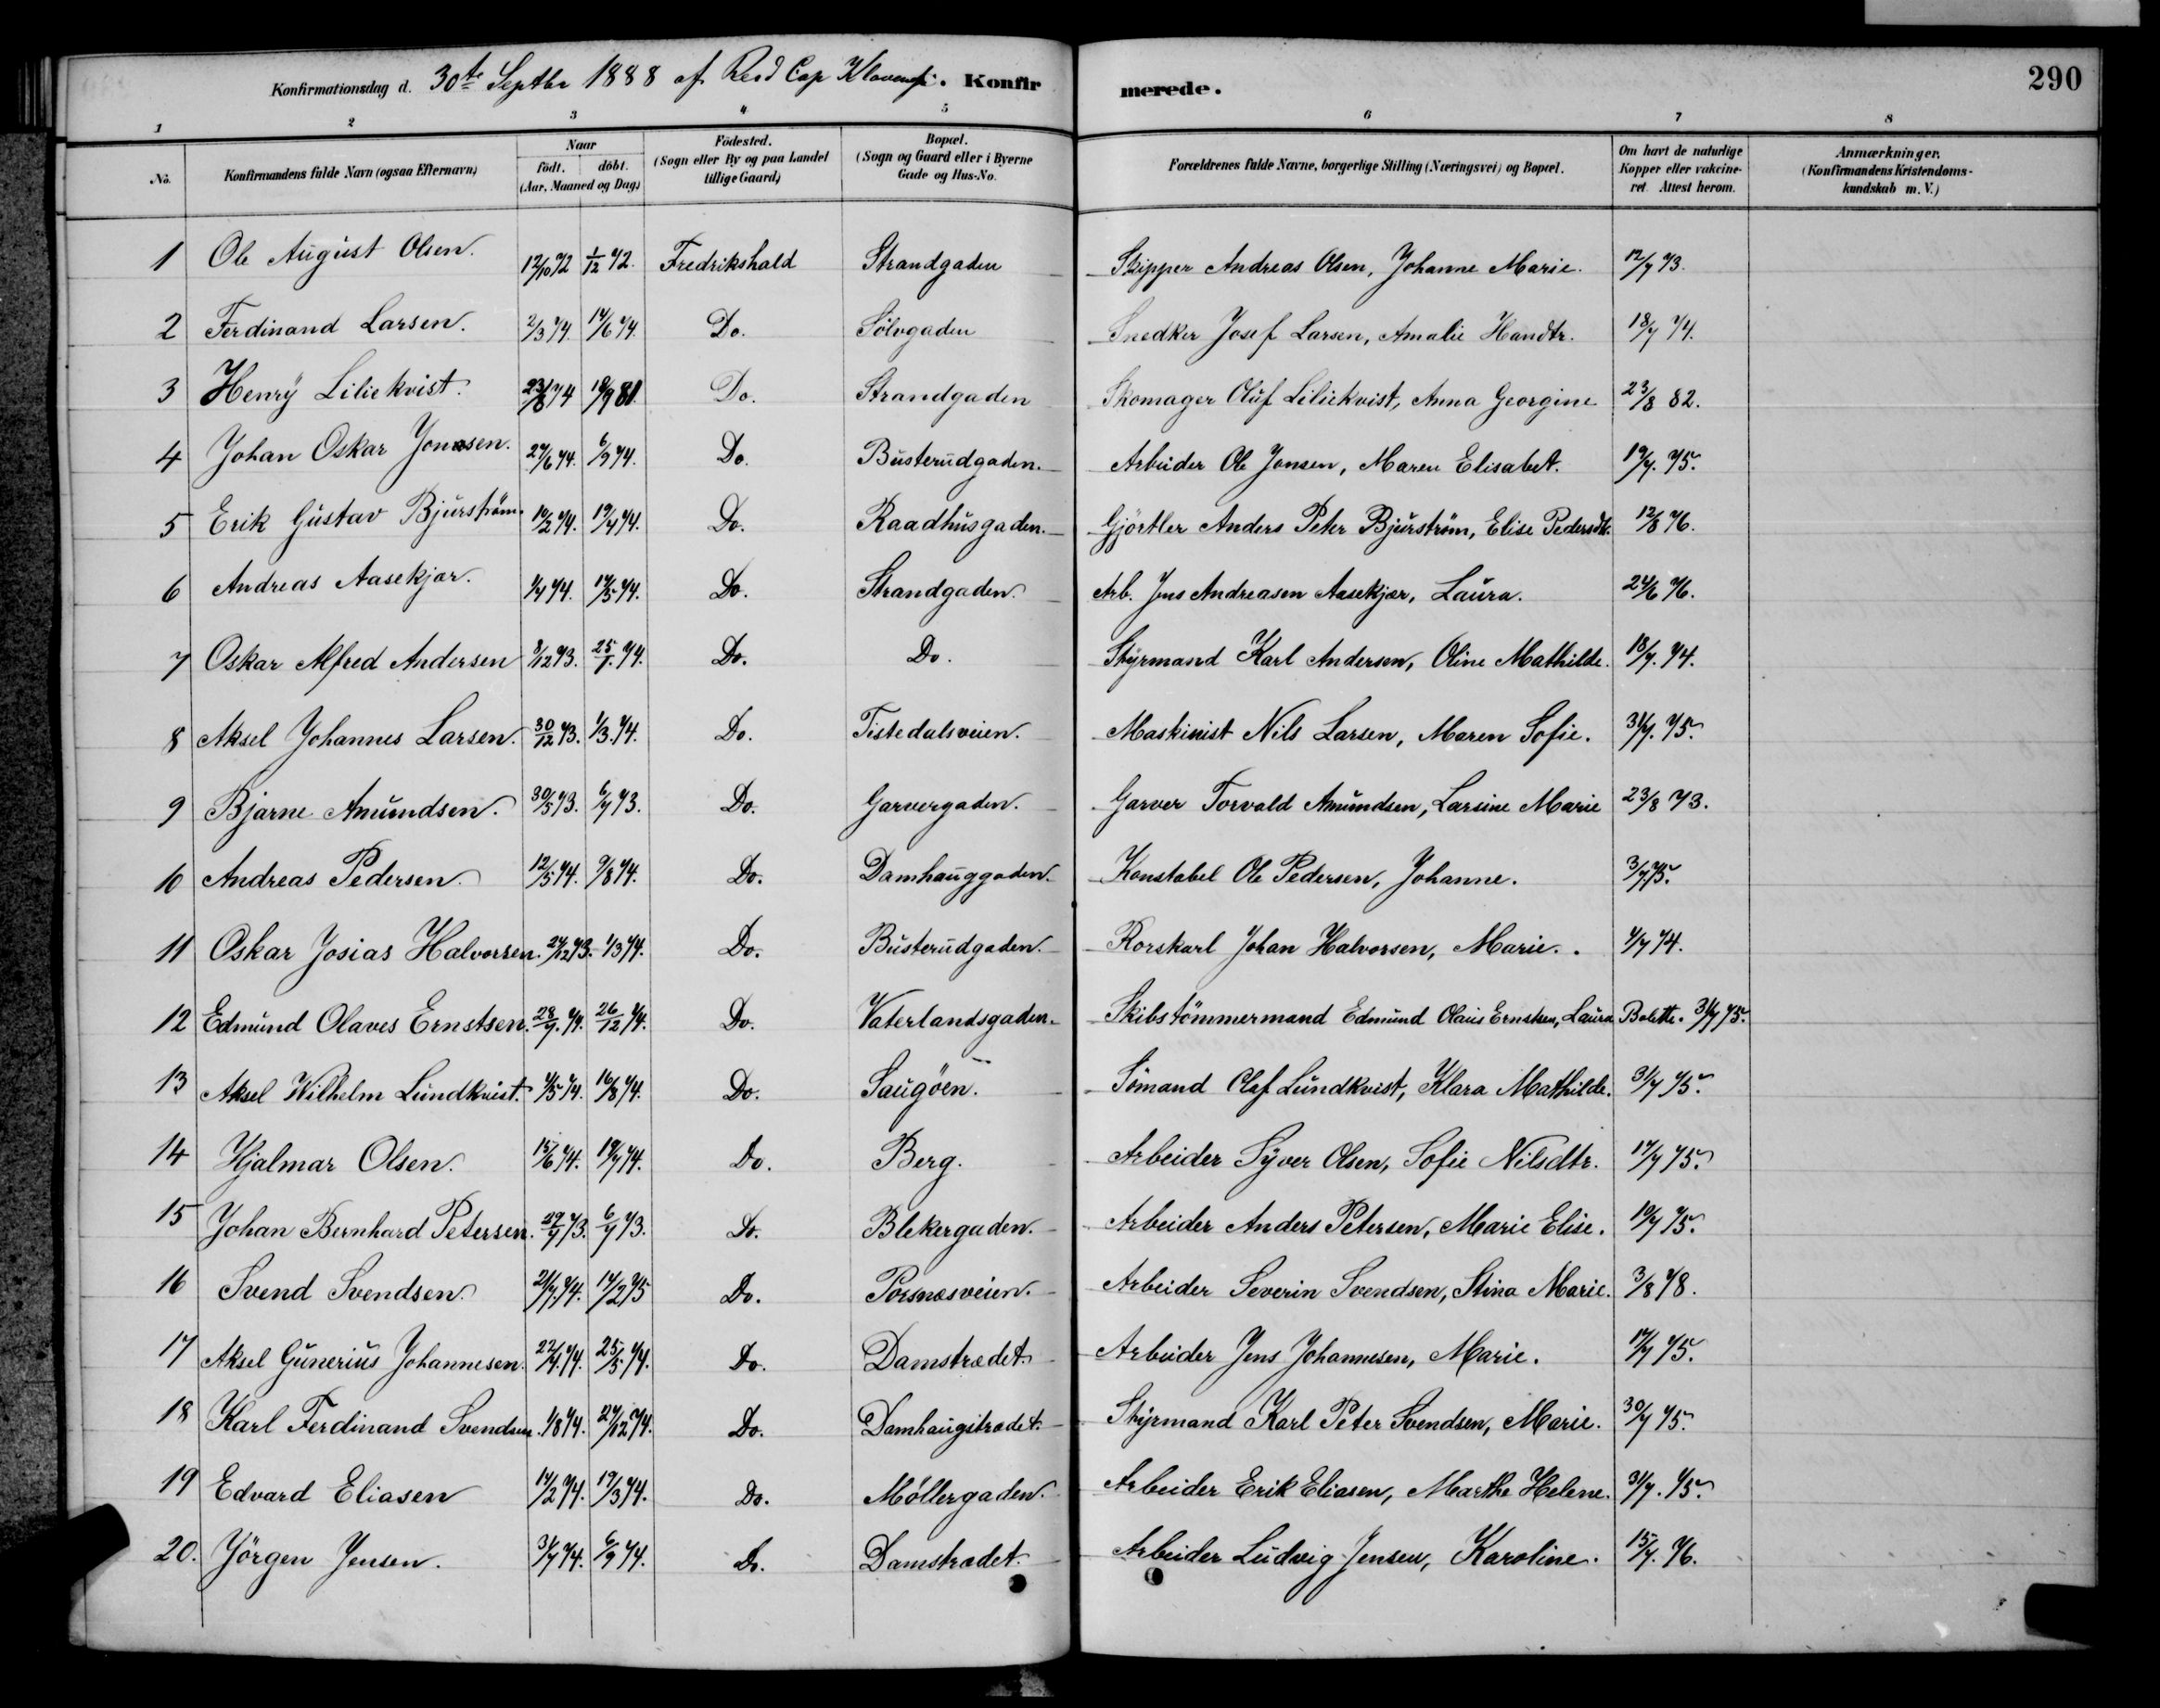 290
Konfirmationsdag d. 30te Septbr 1888 af Resd Cap . Konfirmerede.
1 2 3 4 5 6 7 8
No. Konfirmandens fulde Navn (ogsaa Efternavn) Naar födt. döbt. (Aar, Maaned og Dag) Födested. (Sogn eller By og paa Landet tillige Gaard) Bopæl. (Sogn og Gaard eller i Byerne Gade og Hus-No. Forældrenes fulde Navne, borgerlige Stilling (Næringsvei) og Bopæl. Om havt de naturlige Kopper eller vakcineret. Attest herom. Anmærkninger. (Konfirmandens Kristendomskundskab m. V.)
1 Ole August Olsen. 12/10 72 1/12 72. Fredrikshald Strandgaden Skipper Andreas Olsen, Johanne Marie. 12/7 73.
2 Ferdinand Larsen. 2/3 74. 14/6 74. Do. Sölvgaden Snedker Josef Larsen, Amalie Handtr. 18/7 74.
3 Henry Liliekvist. 23/8 74 18/9 81. Do. Strandgaden Skomager Oluf Liliekvist, Anna Georgine 23/8 82.
4 Johan Oskar Jonassen. 27/6 74. 6/9 74. Do. Busterudgaden. Arbeider Ole Jonsen, Maren Elisabet. 19/7. 75.
5 Erik Gustav Bjurström. 10/2 74. 19/4 74. Do. Raadhusgaden. Gjörtler Anders Peter Bjurström, Elise Pedersdtr. 12/8 76.
6 Andreas Aasekjær. 1/4 74. 14/5 74. Do. Strandgaden. Arb. Jens Andreasen Aasekjær, Laura. 24/6 76.
7 Oskar Alfred Andersen 8/12 73. 25/1. 74. Do. Do. Styrmand Karl Andersen, Oline Mathilde. 18/7. 74.
8 Aksel Johannes Larsen. 30/12 73. 1/3. 74. Do. Tistedalsveien. Maskinist Nils Larsen, Maren Sofie. 31/7. 75.
9 Bjarne Amundsen. 30/5 73. 6/7 73. Do. Garvergaden. Garver Torvald Amundsen, Larsine Marie 23/8 73.
10 Andreas Pedersen. 12/5 74. 9/8 74. Do. Damhauggaden. Konstabel Ole Pedersen, Johanne. 3/7 75.
11 Oskar Josias Halvorsen. 27/12 73. 1/3 74. Do. Busterudgaden. Rorskarl Johan Halvorsen, Marie. 4/7 74.
12 Edmund Olaves Ernstsen. 28/9. 74. 26/12 74. Do. Vaterlandsgaden. Skibstömmermand Edmund Olaus Ernstsen, Laura Bolette. 31/7 75.
13 Aksel Wilhelm Lundkvist. 4/5 74. 16/8 74. Do. Saugöen. Sömand Olaf Lundkvist, Klara Mathilde. 31/7 75.
14 Hjalmar Olsen. 15/6 74. 19/7 74. Do. Berg. Arbeider Syver Olsen, Sofie Nilsdtr. 17/7 75.
15 Johan Bernhard Petersen. 73. 73. Do. Blekergaden. Arbeider Anders Petersen, Marie Elise. 10/7 75.
16 Svend Svendsen. 21/7. 74. 14/2 75 Do. Porsnæsveien. Arbeider Severin Svendsen, Stina Marie. 3/8 78.
17 Aksel Gunerius Johannesen. 22/4. 74. 25/5 74. Do. Damstrædet. Arbeider Jens Johannesen, Marie. 17/7 75.
18 Karl Ferdinand Svendsen. 1/8 74. 27/12 74. Do. Damhaugstrædet. Styrmand Karl Peter Svendsen, Marie. 30/7 75.
19 Edvard Eliasen 14/2 74. 19/3 74. Do. Möllergaden. Arbeider Erik Eliasen, Marthe Helene. 31/7. 75.
20. Jörgen Jensen. 31/7 74. 6/9 74. Do. Damstrædet. Arbeider Ludvig Jensen, Karoline. 15/7. 76.